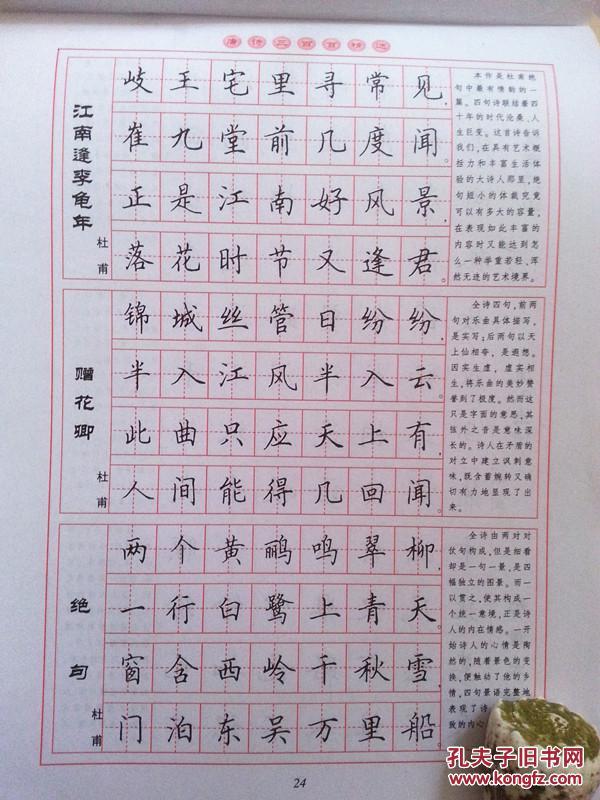 唐诗三百首精选
江南逢李龟年
杜甫
岐王宅里寻常见,
崔九堂前几度闻。
正是江南好风景,
落花时节又逢君。
本作是杜甫绝
句中最有情韵的一
篇。四句诗联结着四
十年的时代沧桑、人
生巨变。这首诗告诉
我们,在具有艺术概
括力和丰富生活体
验的大诗人那里,绝
句短小的体裁究竟
可以有多大的容量,
在表现如此丰富的
内容时又能达到怎
么一种举重若轻、浑
然无迹的艺术境界。
赠花卿
杜甫
锦城丝管日纷纷,
半入江风半入云。
此曲只应天上有,
人间能得几回闻。
全诗四句,前两
句对乐曲具体描写,
是实写;后两句以天
上仙相夸,是遐想。
因实生虚,虚实相
生,将乐曲的美妙赞
誉到了极度。然而这
只是字面的意思,其
弦外之音是意味深
长的。诗人在矛盾的
对立中建立讽刺意
味,既含蓄婉转又确
切有力地显现了出
来。
绝句
杜甫
两个黄鹂鸣翠柳,
一行白鹭上青天。
窗含西岭千秋雪,
门泊东吴万里船。
全诗由两对对
仗句构成,但是细看
却是一句一景,是四
幅独立的图景。而一
以贯之,使其构成一
个统一意境,正是诗
人的内在情感。一开
始诗人的心情是陶
然的,随着景色的变
换,便触动了他的乡
情,四句景语完整地
表现了诗
致的内心
24
孔夫子旧书网
www.kongfz.com